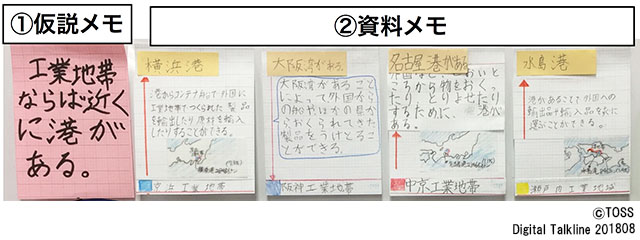 ①仮説メモ
②資料メモ
工業地帯
ならば近く
に港が
ある。
横浜港
港からコンテナ船で外国に
工業地帯でつくられた製品
を輸出したり原材を輸入
したりすることができる。
京浜工業地帯
大阪港がある。
大阪港があること
によって外国から
の船やほかの県か
らおくられてきた
製品をうけとるこ
とができる。
阪神工業地帯
名古屋港がある。
こちらから物をおくっ
たり、とりよせたり
するために、港が
ある。
中京工業地帯
水島港
港があることで外国への
輸出品や輸入品を船に
運ぶことができる。
瀬戸内工業地域
©TOSS
Digital Talkline 201808